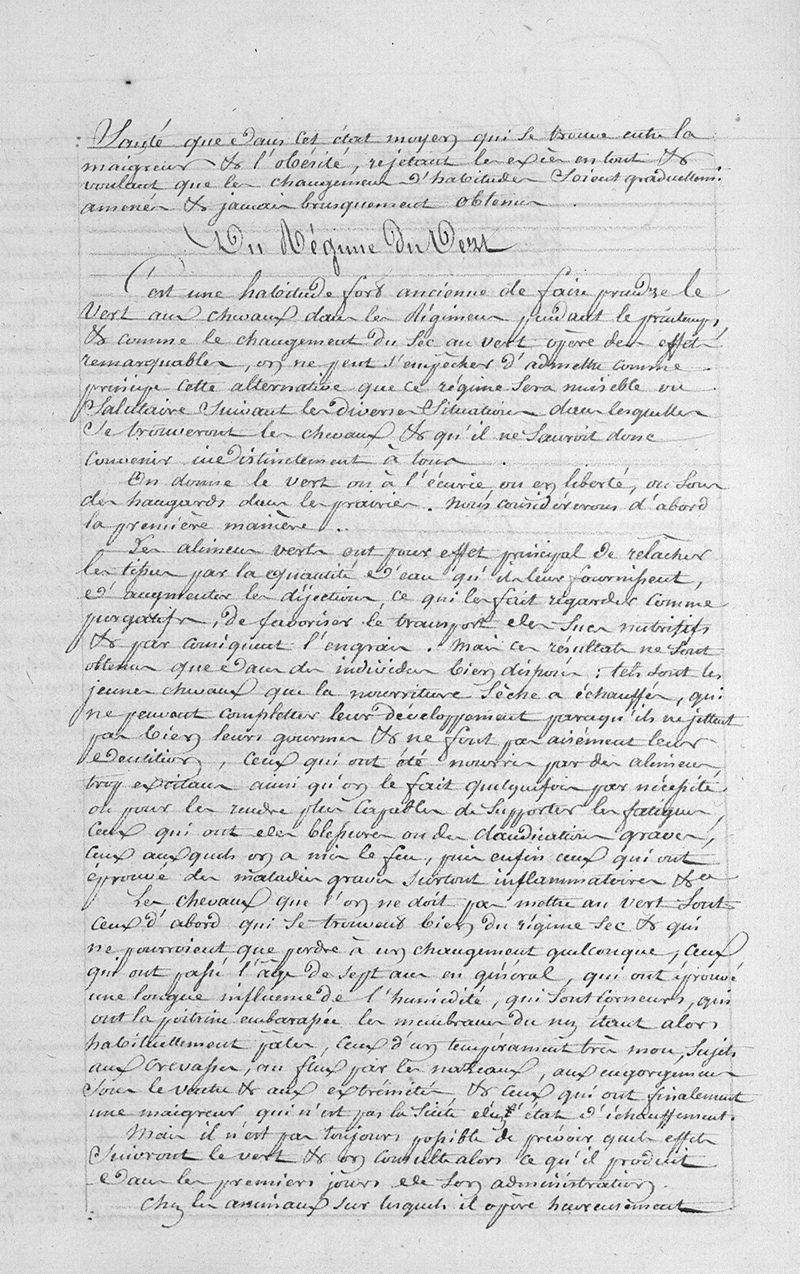 Santé que dans cet état moyen qui se trouve entre la
maigreur & l'obésité, rejetant les excès en tout &
voulant que les changemens d'habitudes soient graduellemt.
amenés & jamais brusquement obtenus.
Du Régime du Vert
C'est une habitude fort ancienne de faire prendre le
Vert aux chevaux dans les Régimens pendant le printemps,
& comme le changement du Sec au vert opère des effets
remarquables, on ne peut s'empêcher d'admettre comme
principe cette alternative que ce régime sera nuisible ou
Salutaire suivant les diverses Situations dans lesquelles
se trouveront les chevaux & qu'il ne sauroit donc
convenir indistinctement à tous.
On donne le vert ou à l'écurie, ou en liberté, ou sous
des hangards dans les prairies. Nous considérerons d'abord
la première manière..
Les alimens verts ont pour effet principal de relâcher
les tissus par la quantité d'eau qu'ils leur fournissent,
d'augmenter les déjections, ce qui les fait regarder comme
purgatifs, de favoriser le transport des Sucs nutritifs
& par conséquent l'engrais. Mais ces résultats ne sont
obtenus que dans des individus bien disposés; tels sont les
jeunes chevaux que la nourriture Sèche a échauffés, qui
ne peuvent completter leur développement parcequ'ils ne jettent
pas bien leurs gourmes & ne font pas aisément leur
dentition, ceux qui ont été nourris par des alimens
trop excitans ainsi qu'on le fait quelquefois par nécessité
ou pour les rendre plus capables de Supporter les fatigues,
Ceux qui ont des blessures ou des claudications graves,
Ceux auxquels on a mis le feu, puis enfin ceux qui ont
éprouvé des maladies graves surtout inflammatoires &a
Les chevaux que l'on ne doit pas mettre au vert sont
ceux d'abord qui se trouvent bien du régime sec & qui
ne pourroient que perdre à un changement quelconque, Ceux
qui ont passé l'âge de sept ans en général, qui ont éprouvé
une longue influence de l'humidité, qui sont corneurs, qui
ont la poitrine embarassée les membranes du nez étant alors
habituellement pâles, ceux d'un tempérament très mou, sujets
aux crevasses, au flux par les nazeaux, aux engorgemens
sous le ventre & aux extrémités & ceux qui ont finalement
une maigreur qui n'est pas la suite d'un état d'échauffement.
Mais il n'est pas toujours possible de prévoir quels effets
suivront le vert & on consulte alors ce qu'il produit
dans les premiers jours de son administration.
Chez les animaux sur lesquels il opère heureusement